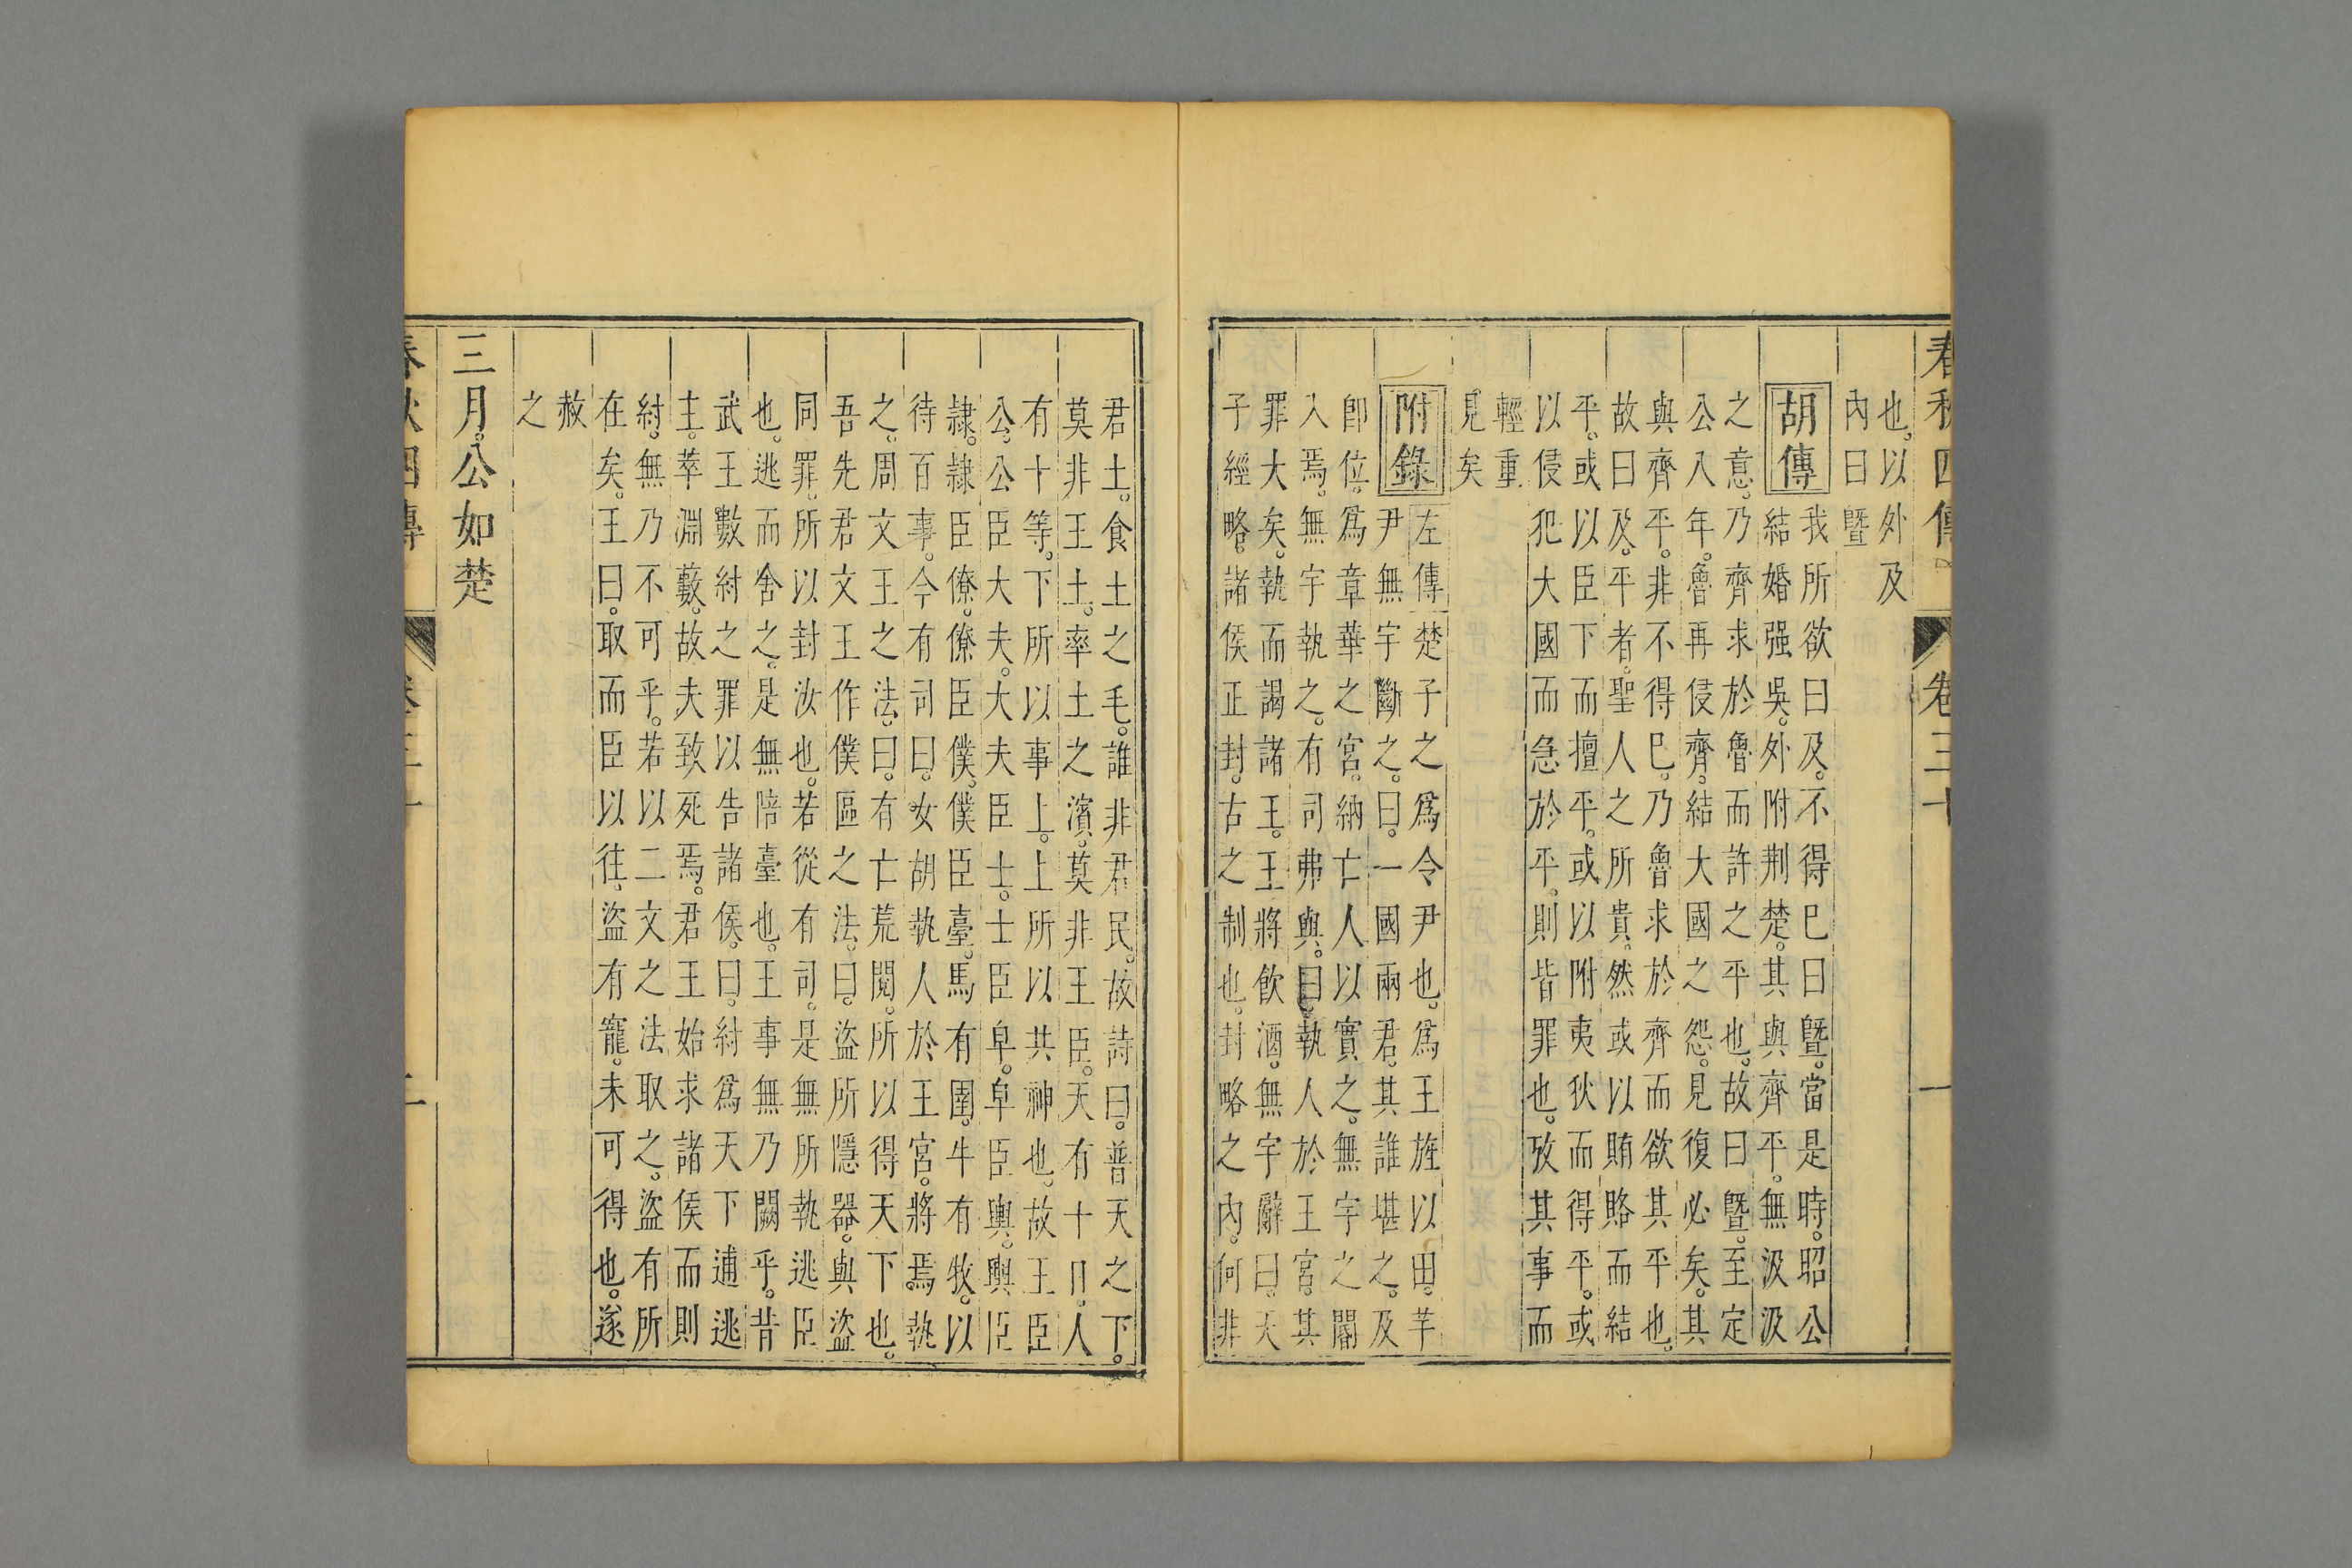 春秋四傳 卷三十 一
也。以外及
內曰曁
胡傳 我所欲曰及。不得已曰曁。當是時。昭公
結婚强吳。外附荆楚。其與齊平。無汲汲
之意。乃齊求於魯而許之平也。故曰曁。至定
公八年。魯再侵齊。結大國之怨。見復必矣。其
與齊平。非不得已。乃魯求於齊而欲其平也。
故曰及。平者。聖人之所貴。然或以賄賂而結
平。或以臣下而擅平。或以附夷狄而得平。或
以侵犯大國而急於平。則皆罪也。攷其事而
輕重
見矣
附錄 左傳 楚子之爲令尹也。爲王旌以田。芋
尹無宇斷之。曰。一國兩君。其誰堪之。及
卽位。爲章華之宮。納亡人以實之。無宇之閽
入焉。無宇執之。有司弗與。曰。執人於王宮。其
罪大矣。執而謁諸王。王將飮酒。無宇辭曰。天
子經略。諸侯正封。古之制也。封略之內。何非
君土。食土之毛。誰非君民。故詩曰。普天之下。
莫非王土。率土之濱。莫非王臣。天有十日。人
有十等。下所以事上。上所以共神也。故王臣
公。公臣大夫。大夫臣士。士臣皁。皁臣輿。輿臣
隷。隷臣僚。僚臣僕。僕臣臺。馬有圉。牛有牧。以
待百事。今有司曰。女胡執人於王宮。將焉執
之。周文王之法。曰。有亡荒閱。所以得天下也。
吾先君文王作僕區之法。曰。盜所隱器。與盜
同罪。所以封汝也。若從有司。是無所執逃臣
也。逃而舍之。是無陪臺也。王事無乃闕乎。昔
武王數紂之罪以告諸侯。曰。紂爲天下逋逃
主。萃淵藪。故夫致死焉。君王始求諸侯而則
紂。無乃不可乎。若以二文之法取之。盜有所
在矣。王曰。取而臣以往。盜有寵。未可得也。遂
赦
之
三月。公如楚
春秋四傳